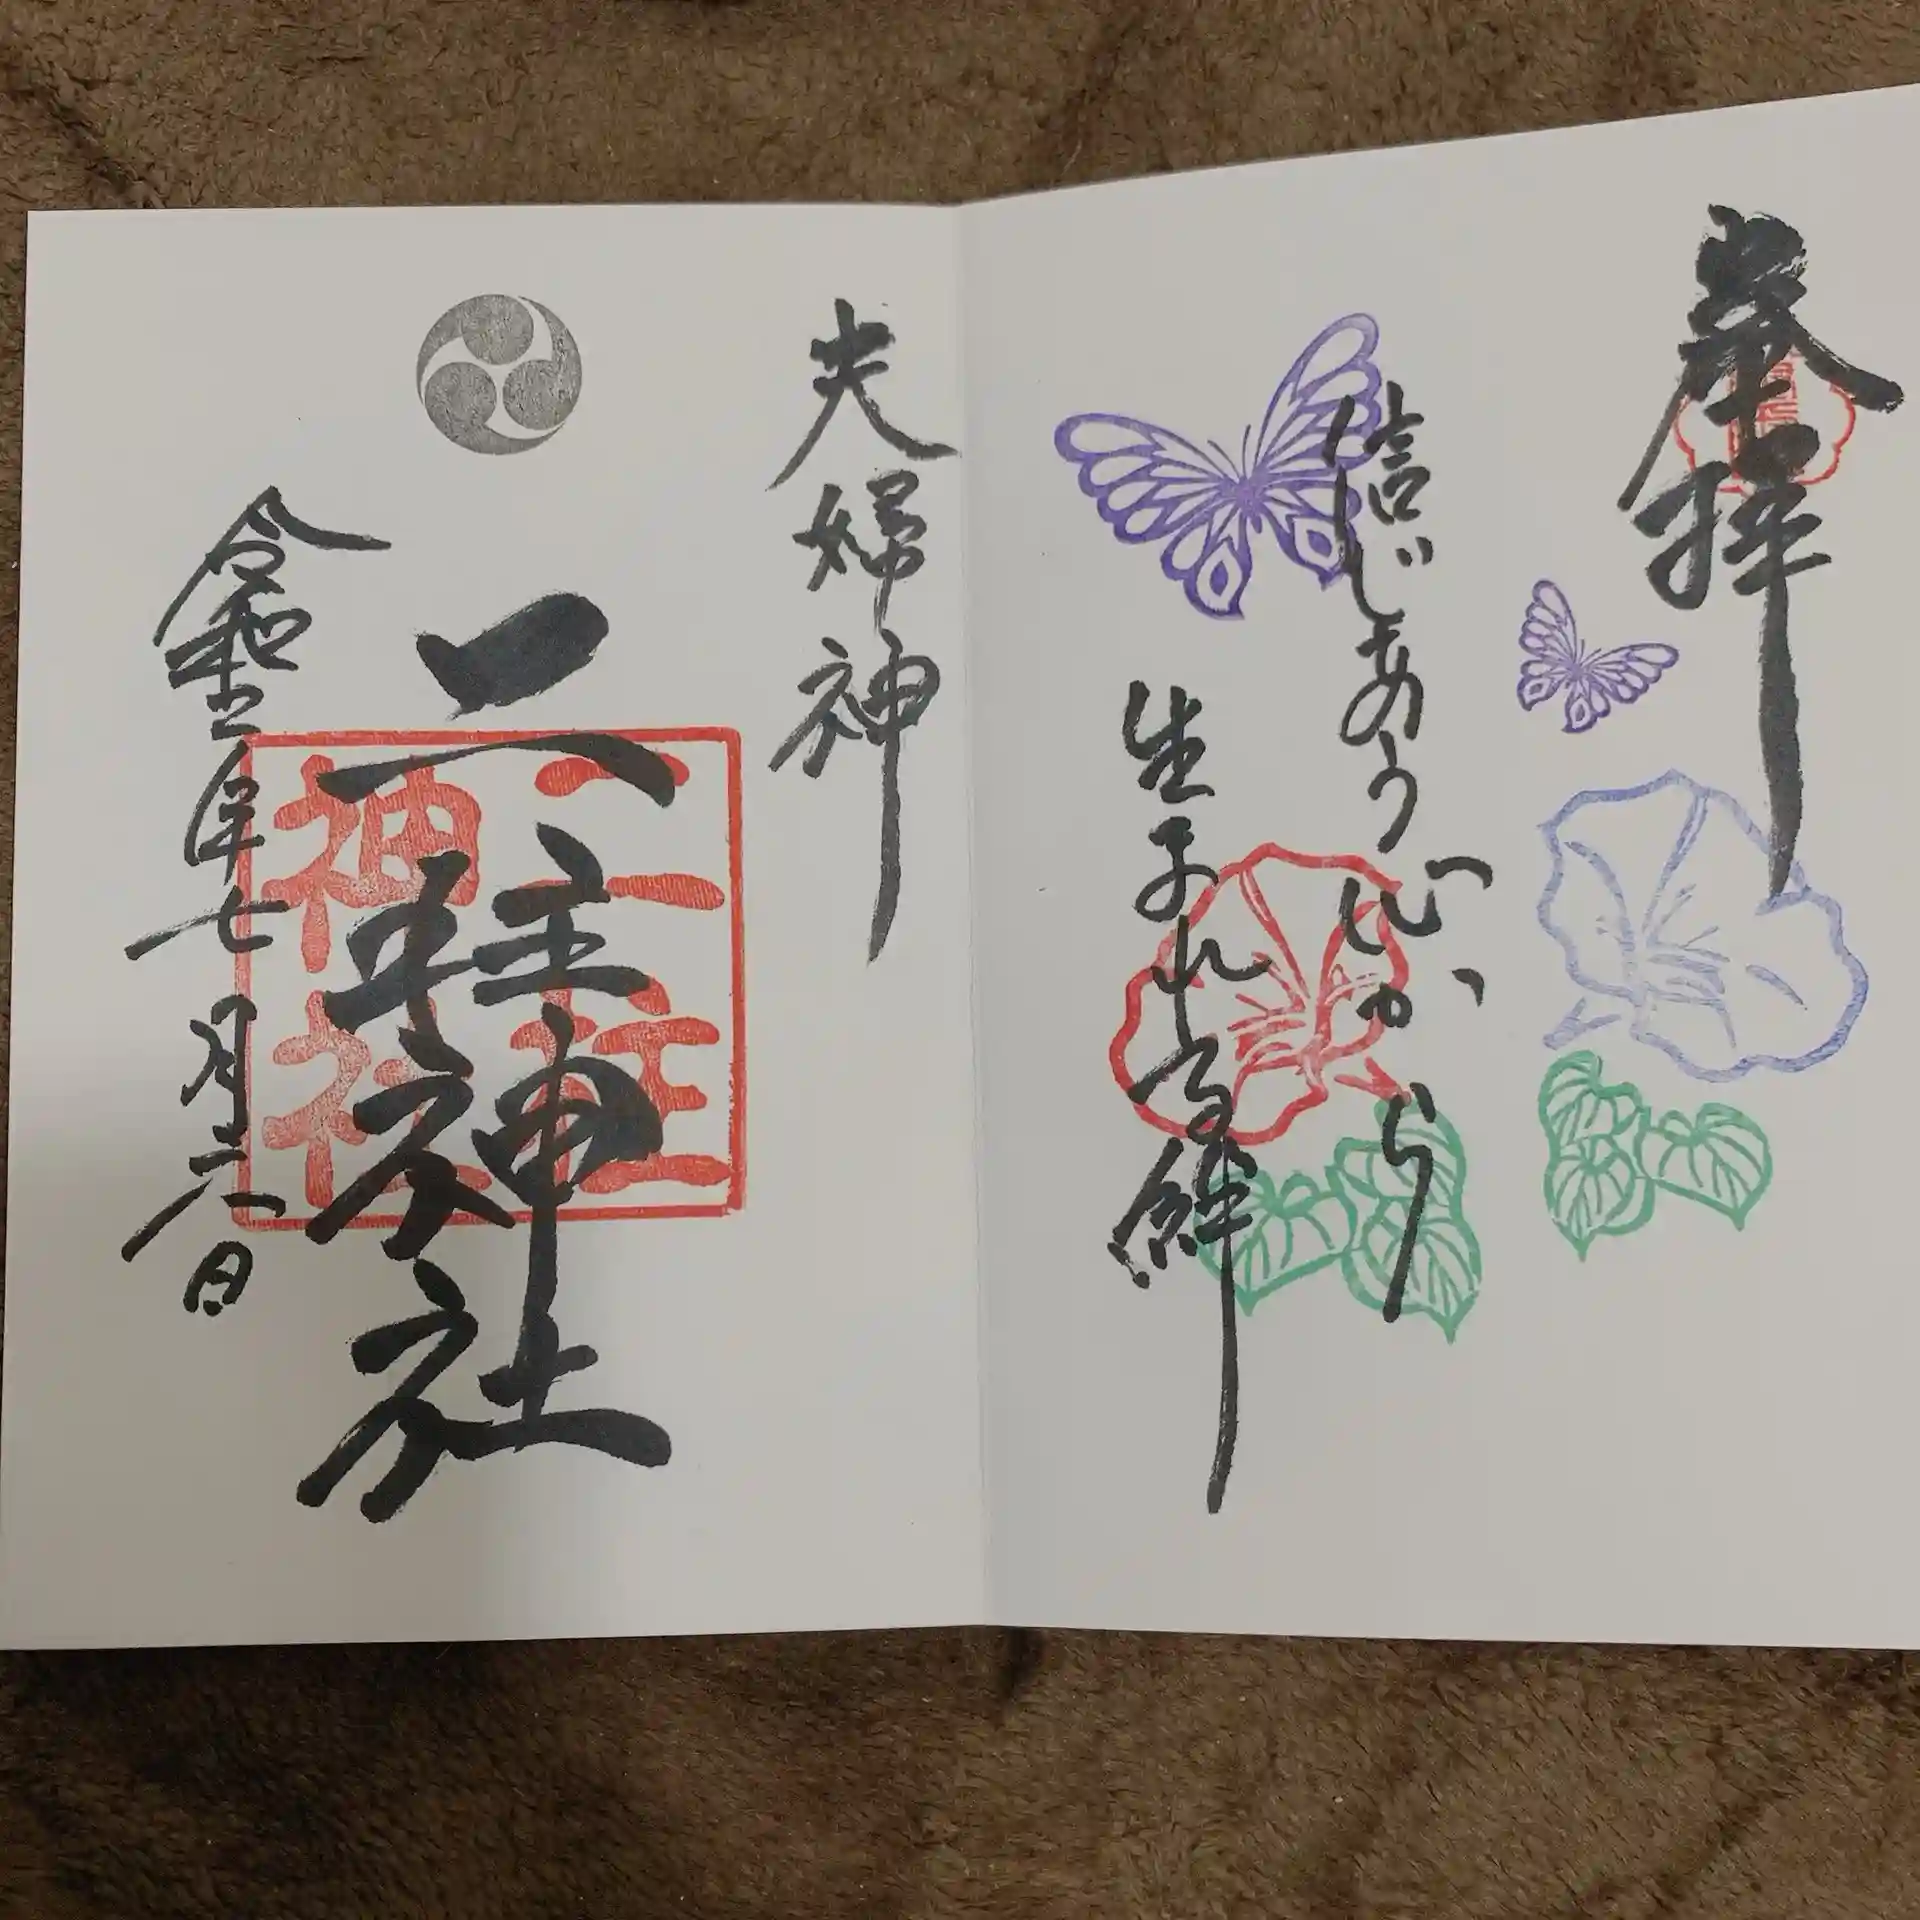 奉拝
信じあう心から
生まれる絆
夫婦神
二柱神社
二柱
神社
令和五年七月二八日